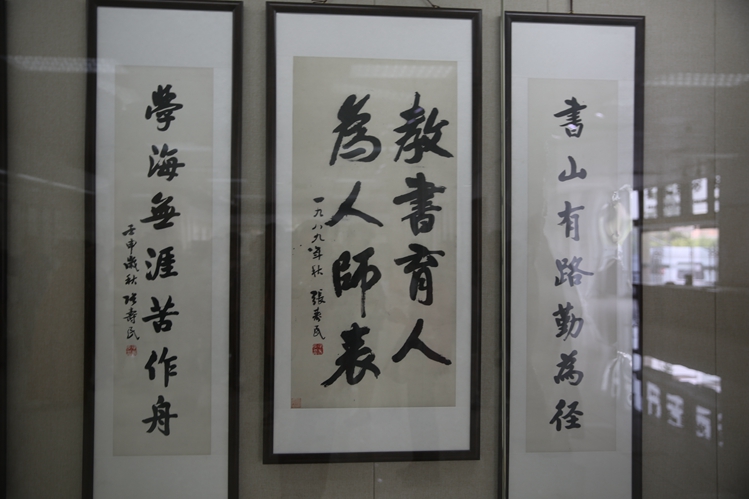 書山有路勤為径
教書育人
為人師表
一九八九年秋 張寿民
學海無涯苦作舟
壬申歲秋 張寿民